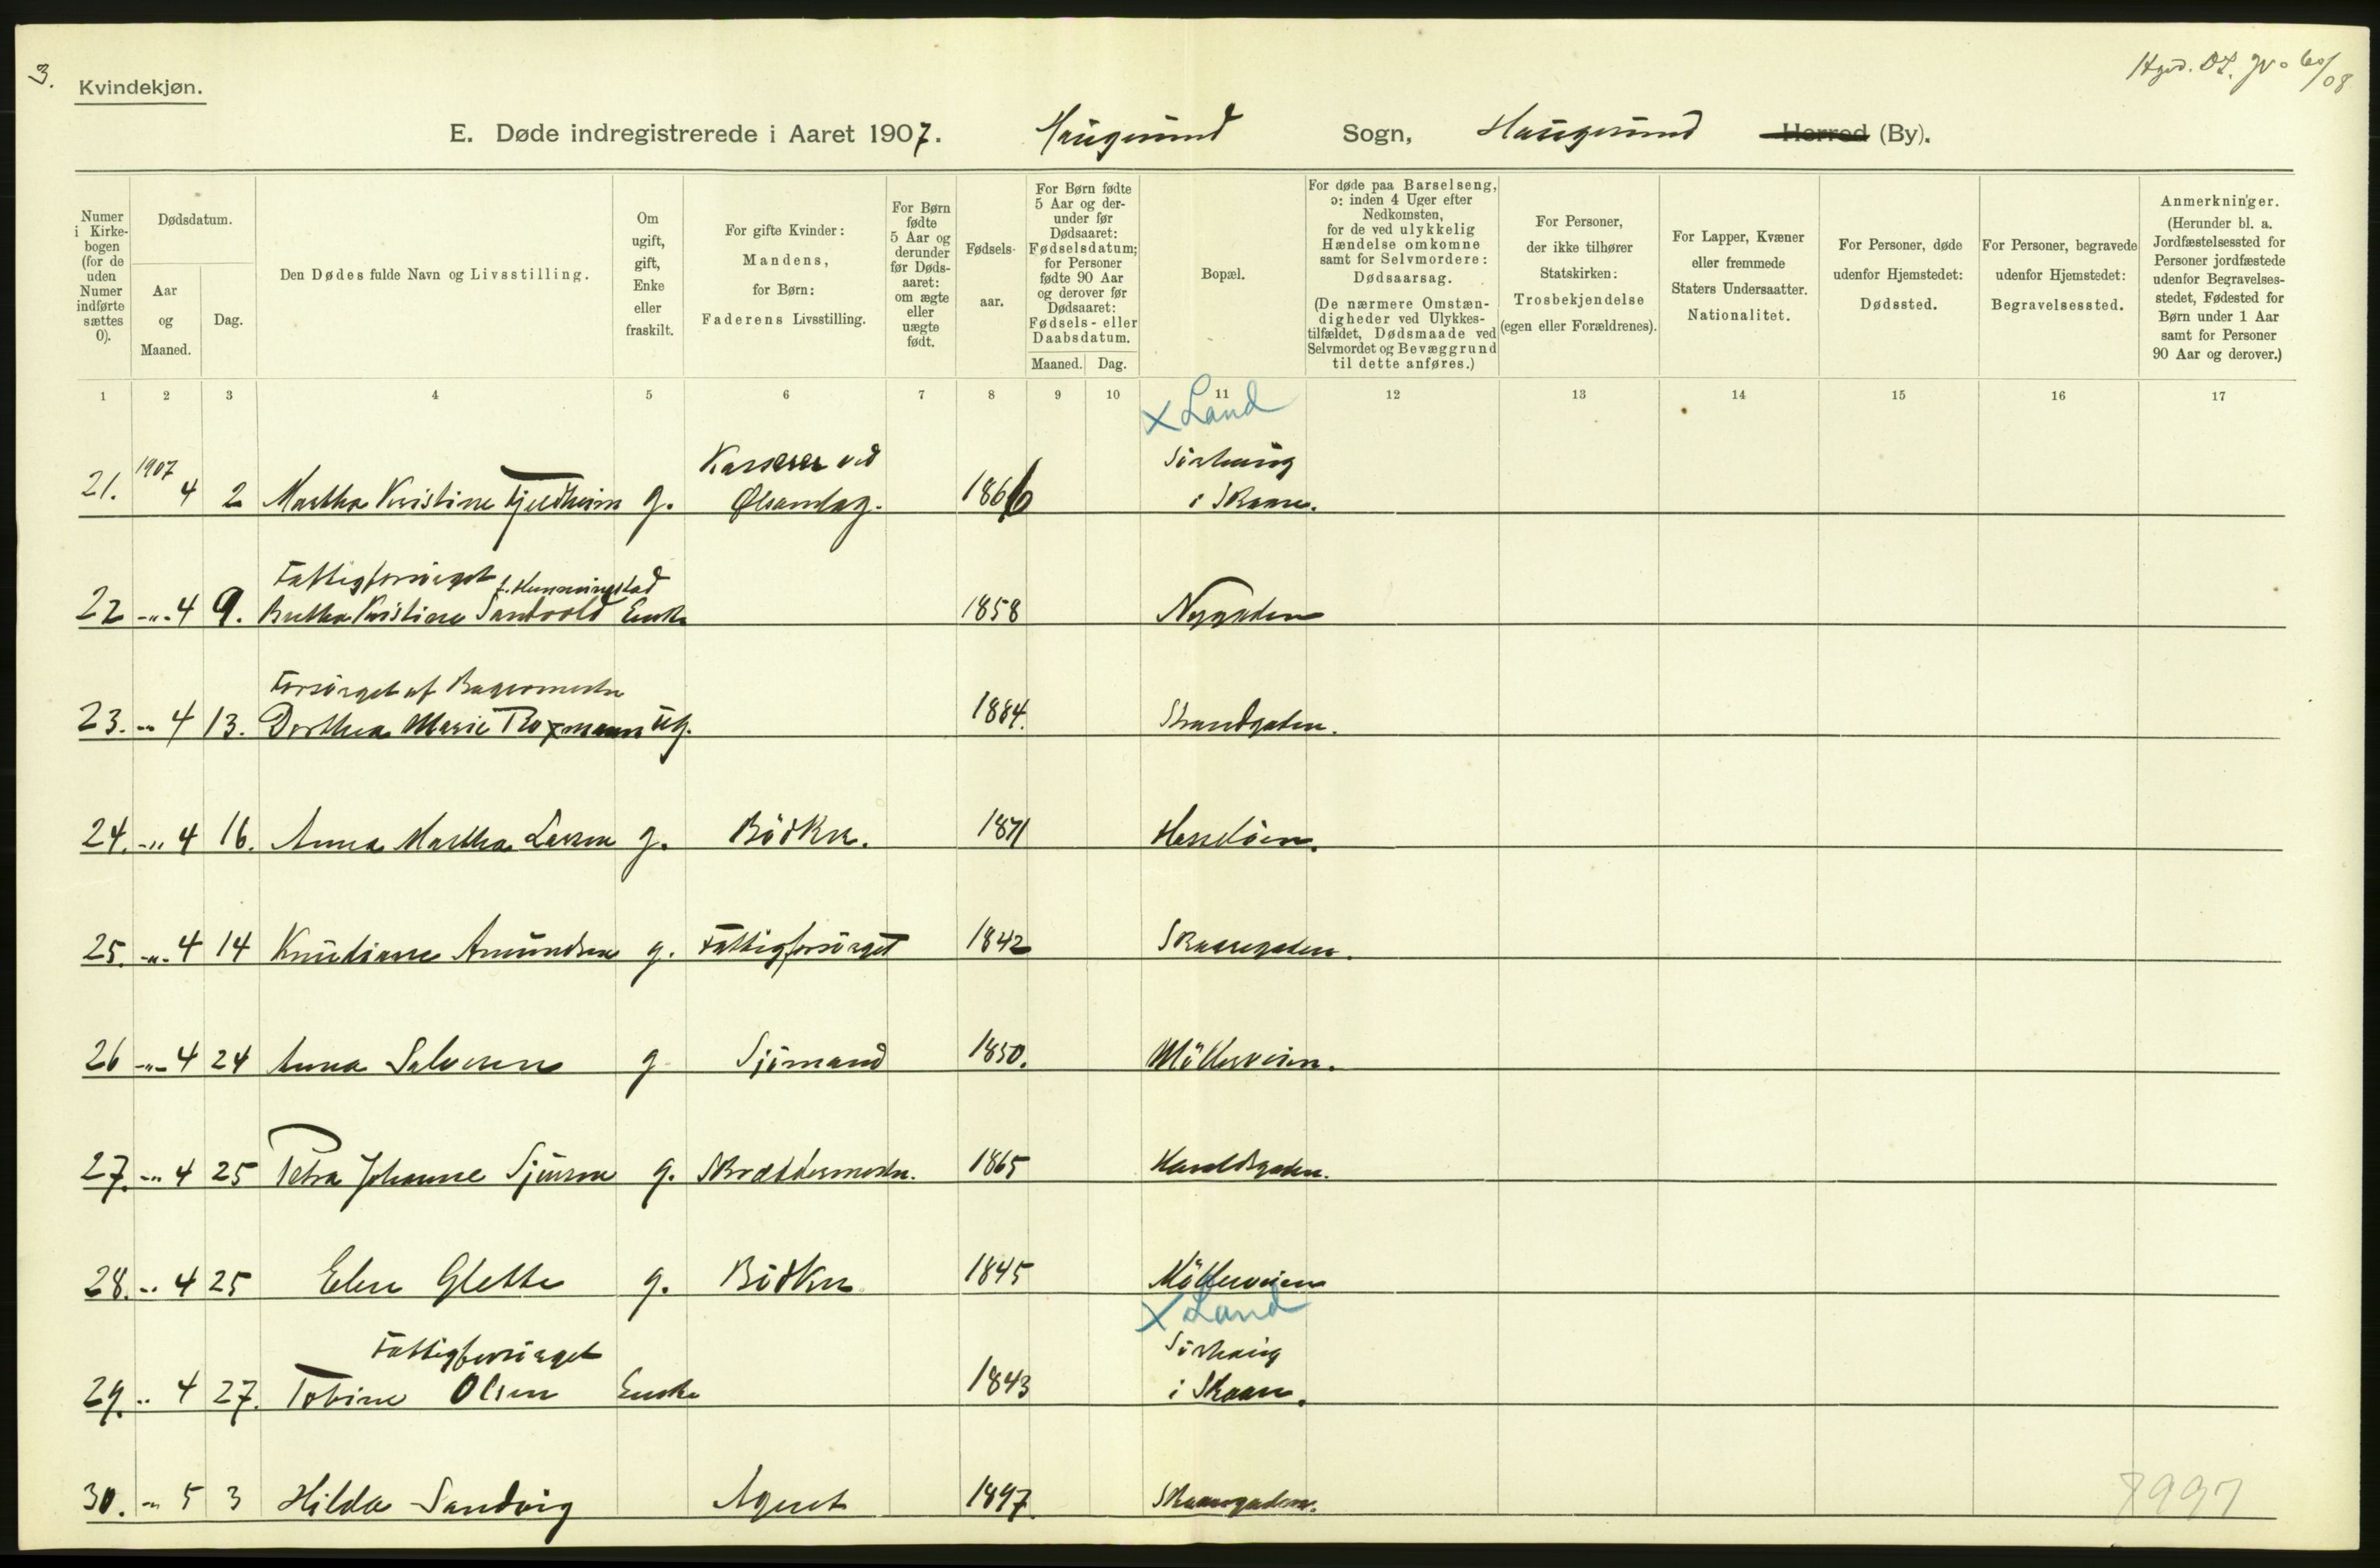 3.
Kvindekjøn.
E. Døde indregistrerede i Aaret 1907. Haugesund Sogn, Haugesund Herred (By).
Numer i Kirkebogen (for de uden Numer indførte sættes 0).
Dødsdatum.
Aar og Maaned.
Dag.
Den Dødes fulde Navn og Livsstilling.
Om ugift, gift, Enke eller fraskilt.
For gifte Kvinder: Mandens, for Børn: Faderens Livsstilling.
For Børn fødte 5 Aar og derunder før Dødsaaret: om ægte eller uægte født.
Fødselsaar.
For Børn fødte 5 Aar og derunder før Dødsaaret: Fødselsdatum; for Personer fødte 90 Aar og derover før Dødsaaret: Fødsels- eller Daabsdatum.
Maaned. Dag.
Bopæl.
For døde paa Barselseng, ɔ: inden 4 Uger efter Nedkomsten, for de ved ulykkelig Hændelse omkomne samt for Selvmordere: Dødsaarsag.
(De nærmere Omstændigheder ved Ulykkestilfældet, Dødsmaade ved Selvmordet og Bevæggrund til dette anføres.)
For Personer, der ikke tilhører Statskirken: Trosbekjendelse (egen eller Forældrenes).
For Lapper, Kvæner eller fremmede Staters Undersaatter. Nationalitet.
For Personer, døde udenfor Hjemstedet: Dødssted.
For Personer, begravede udenfor Hjemstedet: Begravelsessted.
Anmerkninger.
(Herunder bl. a. Jordfæstelsessted for Personer jordfæstede udenfor Begravelsesstedet, Fødested for Børn under 1 Aar samt for Personer 90 Aar og derover.)
1 2 3 4 5 6 7 8 9 10 11 12 13 14 15 16 17
x Land
Kasserer ved Sörhaug
21. 1907 4 2 Martha Kristine Fjeldheim g. Ølsamlag. 1866 i Skaare.
Fattigforsörget f. Hemmingstad
22 -"- 4 9. Bertha Kristine Sandvold Enke 1858 Nygaden
Forsörget af Bagermester
23. -"- 4 13. Dorthea Marie ug. 1884. Strandgaden.
24. -"- 4 16. Anna Martha Larsen g. Bödker. 1871 Hasselöen.
25. -"- 4 14 Knudiane Amundsen g. Fattigforsörget 1842 Skaaregaden.
26 -"- 4 24 Anna Salvesen g. Sjömand 1850. Möllerveien.
27. -"- 4 25 Petra Johanne Sjursen g. Skræddermester. 1865 Haraldsgaden.
28. -"- 4 25 Elen Glette g. Bödker 1845 Möllerveien
x Land
Fattigforsörget Sörhaug
29. -"- 4 27. Tobine Olsen Enke 1843 i Skaare.
30. -"- 5 3 Hilda Sandvig Agent 1897. Skaaregaden.
7997